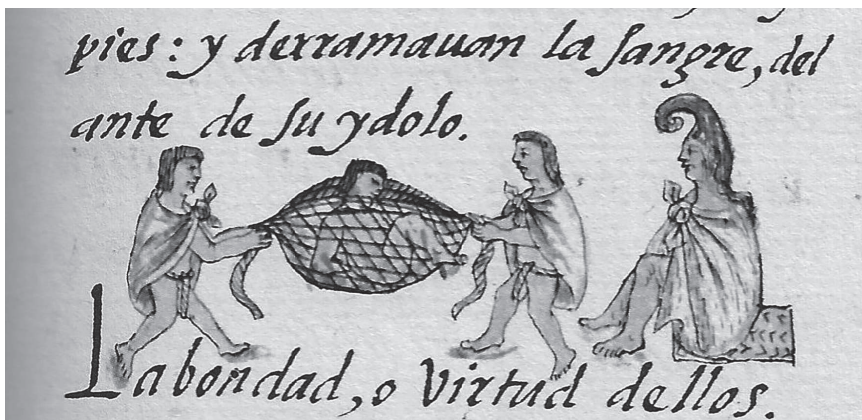 pies: y derramauan la sangre, del
ante de su ydolo.
La bondad, o virtud dellos